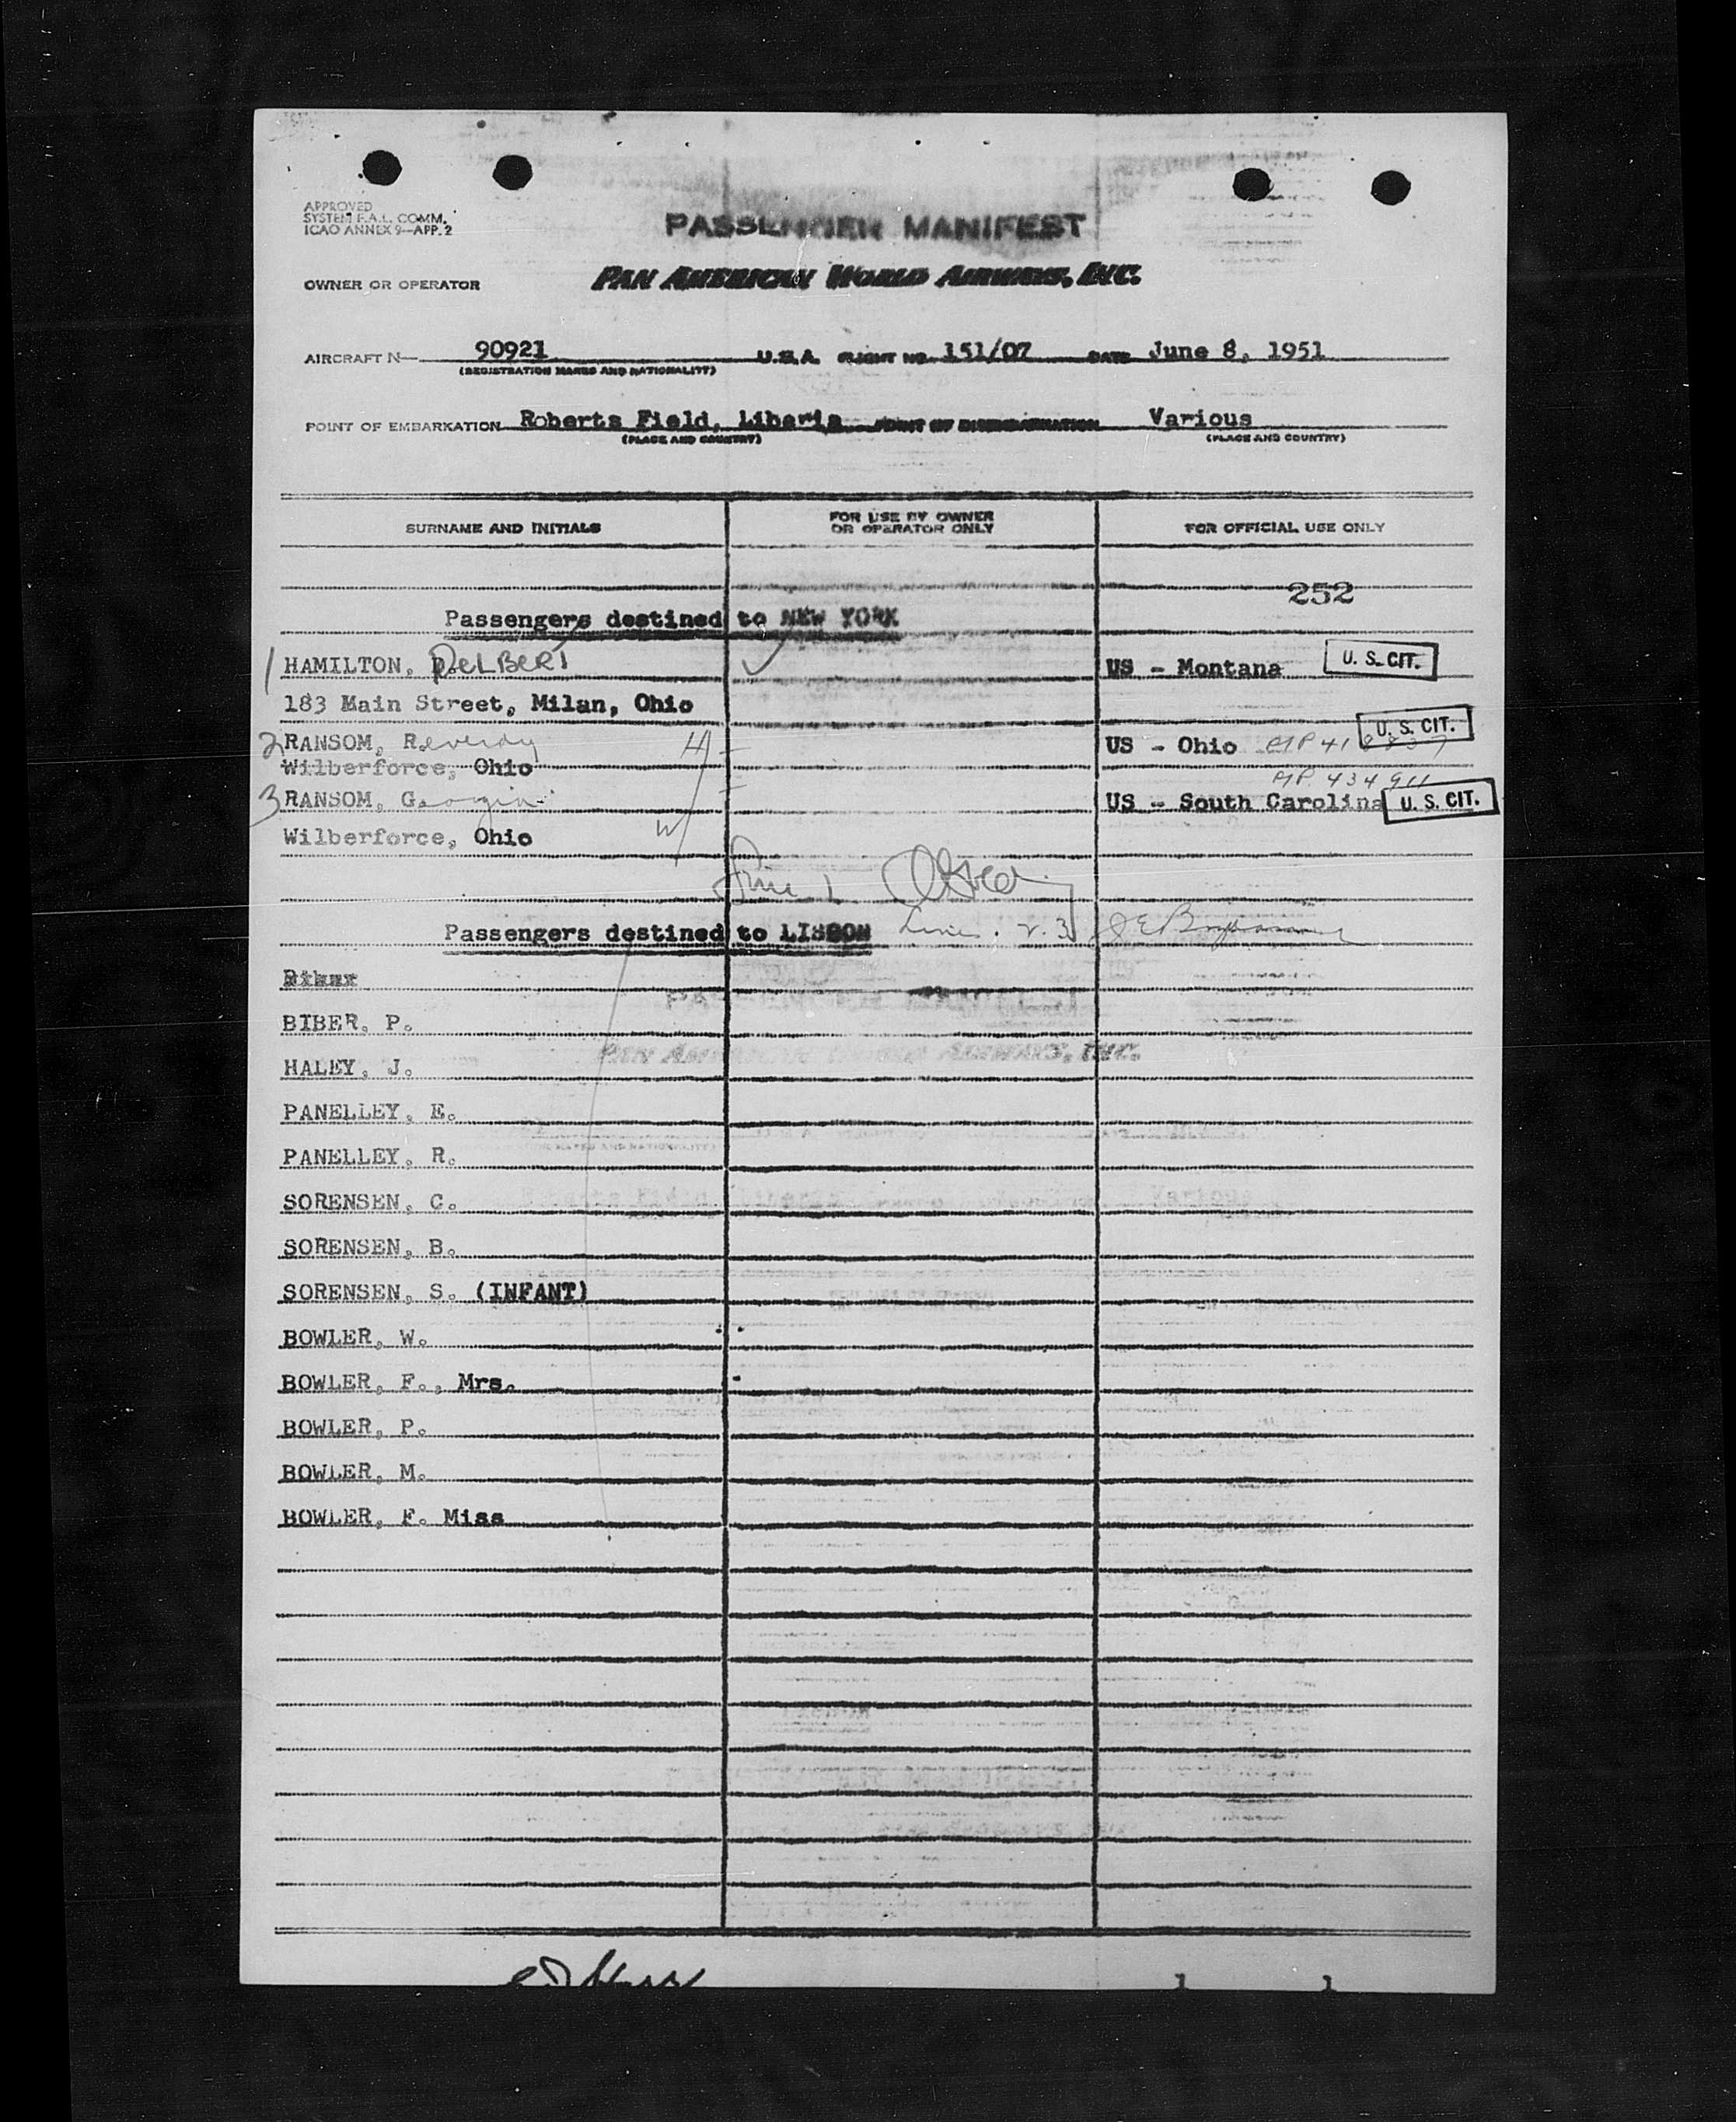 APPROVED
SYSTEM F.A.L. COMM.
ICAO ANNEX 9—APP. 2
PASSENGER MANIFEST
OWNER OR OPERATOR PAN AMERICAN WORLD AIRWAYS, INC.
AIRCRAFT N— 90921 U.S.A. FLIGHT NO. 151/07 DATE June 8, 1951
(REGISTRATION MARKS AND NATIONALITY)
POINT OF EMBARKATION Roberts Field, Liberia POINT OF DISEMBARKATION Various
(PLACE AND COUNTRY) (PLACE AND COUNTRY)
SURNAME AND INITIALS FOR USE BY OWNER OR OPERATOR ONLY FOR OFFICIAL USE ONLY
252
Passengers destined to NEW YORK
1 HAMILTON, DELBERT US - Montana U. S. CIT.
183 Main Street, Milan, Ohio
2 RANSOM, Reverdy H US - Ohio U. S. CIT.
Wilberforce, Ohio PP. 434911
3 RANSOM, Georgia US - South Carolina U. S. CIT.
Wilberforce, Ohio W
Line 1
Passengers destined to LISBON Line. 2.3
BIBER, P.
HALEY, J.
PANELLEY, E.
PANELLEY, R.
SORENSEN, C.
SORENSEN, B.
SORENSEN, S. (INFANT)
BOWLER, W.
BOWLER, F., Mrs.
BOWLER, P.
BOWLER, M.
BOWLER, F. Miss